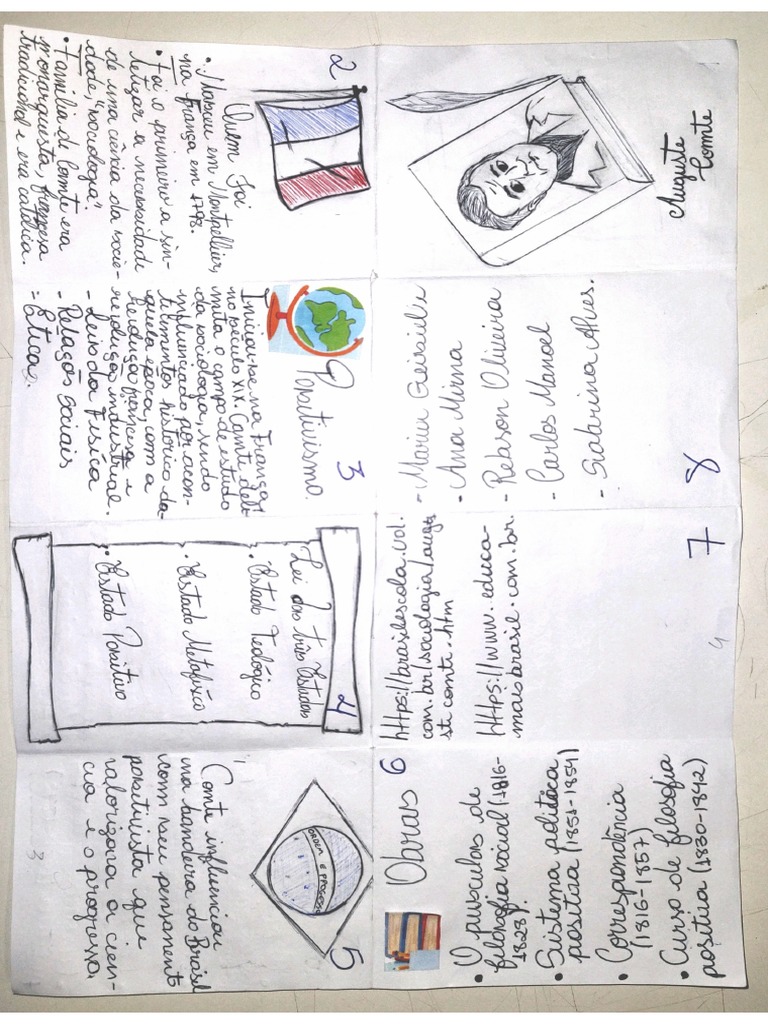 Auguste
Comte
2
Quem Foi
• Nasceu em Montpellier,
na França em 1798.
• Foi o primeiro a sin-
tetizar a necessidade
de uma ciência da socie-
dade, "sociologia".
• Família de Comte era
monarquista, francesa
tradicional e era católica.
3
Positivismo
Iniciou-se na França,
no século XIX. Comte deli-
mita o campo de estudo
da sociologia, sendo
influenciado por acon-
tecimentos histórico da-
quela época, com a
Revolução francesa e
revolução industrial.
- Leis da Física
- Relações sociais
= Ética.
4
Lei dos três Estados
• Estado Teológico
• Estado Metafísico
• Estado Positivo
5
ORDEM E PROGRESSO
Comte influenciou
na bandeira do Brasil
com seu pensamento
positivista que
valorizava a ciên-
cia e o progresso,
3
6
Obras
• O pusculos de
filosofia social (1816-
1828).
• Sistema política
positiva (1851-1854)
• Correspondência
(1816-1857)
• Curso de filosofia
positiva (1830-1842)
7
https://brasilescola.uol.
com.br/sociologia/augu
st comte.htm
https://www.educa-
maisbrasil.com.br.
4
8
- Maria
- Ana Mirna
- Robson Oliveira
- Carlos Manoel
- Sabrina Alves.